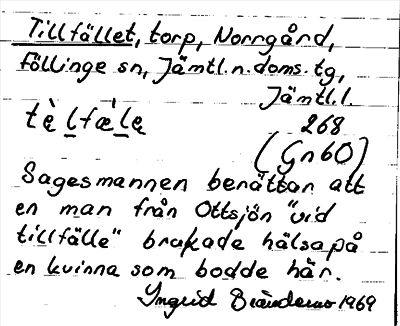 Tillfället, torp, Norrgård,
Föllinge sn, Jämtl. n. doms. tg,
Jämtl. l.
tè̜lfæ̀le̜ 268
(Gn60)
Sagesmannen berättar att
en man från Ottsjön "vid
tillfälle" brukade hälsa på
en kvinna som bodde här.
Ingrid 1969